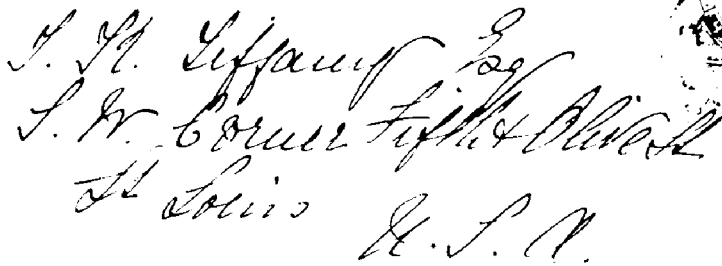 T. H. Tiffany Esq
S. W. Corner Fifth & Olive St
St Louis
U. S. A.